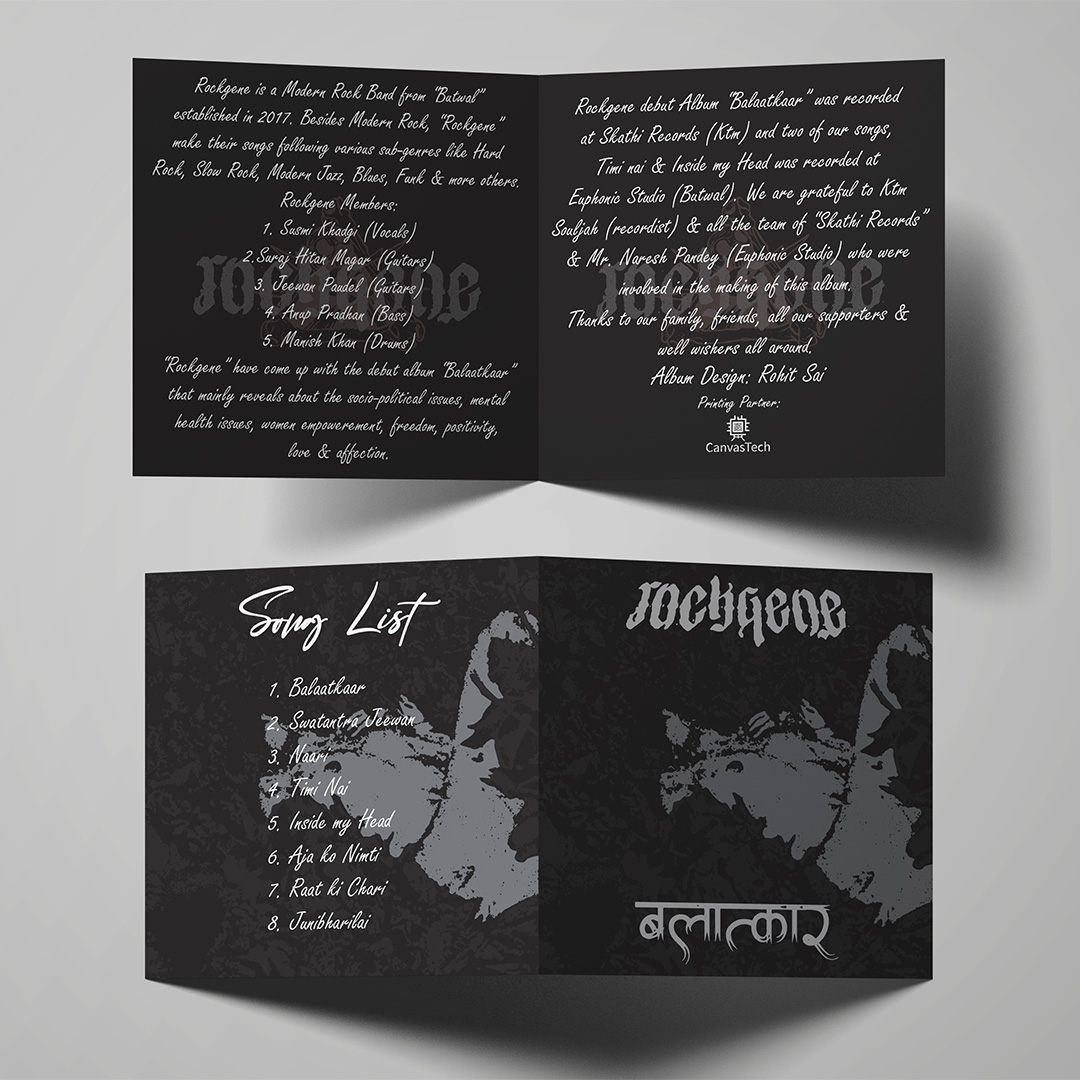 Rockgene is a Modern Rock Band from "Butwal"
established in 2017. Besides Modern Rock, "Rockgene"
make their songs following various sub-genres like Hard
Rock, Slow Rock, Modern Jazz, Blues, Funk & more others.
Rockgene Members:
1. Susmi Khadgi (Vocals)
2.Suraj Hitan Magar (Guitars)
3. Jeewan Paudel (Guitars)
4. Anup Pradhan (Bass)
5. Manish Khan (Drums)
rockgene
"Rockgene" have come up with the debut album "Balaatkaar"
that mainly reveals about the socio-political issues, mental
health issues, women empowerement, freedom, positivity,
love & affection.
Rockgene debut Album "Balaatkaar" was recorded
at Skathi Records (Ktm) and two of our songs,
Timi nai & Inside my Head was recorded at
Euphonic Studio (Butwal). We are grateful to Ktm
Souljah (recordist) & all the team of "Skathi Records"
& Mr. Naresh Pandey (Euphonic Studio) who were
involved in the making of this album.
rockgene
Thanks to our family, friends, all our supporters &
well wishers all around.
Album Design: Rohit Sai
Printing Partner:
CanvasTech
Song List
1. Balaatkaar
2. Swatantra Jeewan
3. Naari
4. Timi Nai
5. Inside my Head
6. Aja ko Nimti
7. Raat ki Chari
8. Junibharilai
rockgene
बलात्कार